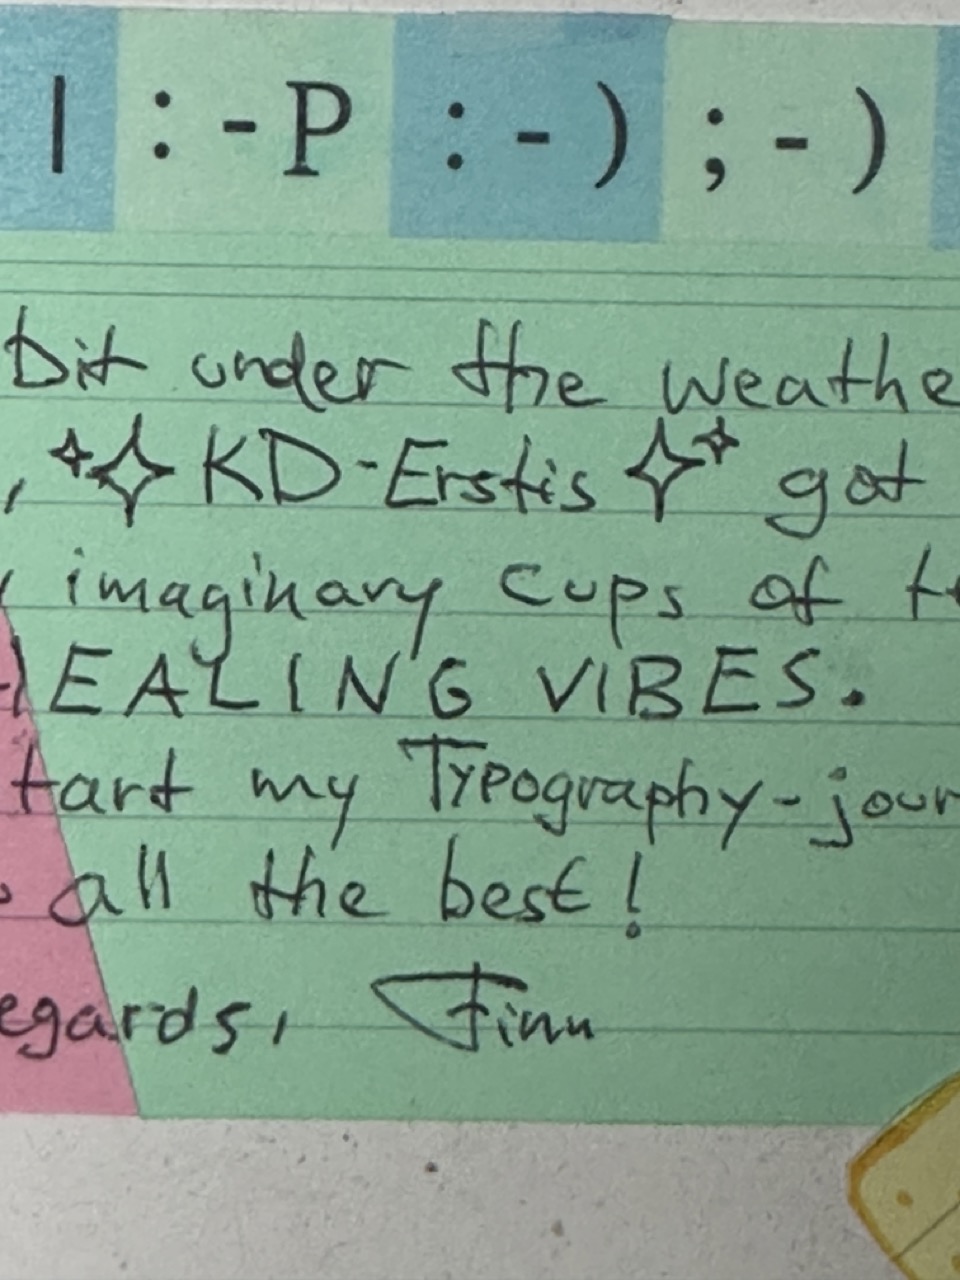 | :-P :-) ;-)
bit under the weathe
, KD-Erstis got
imaginary cups of t
HEALING VIBES.
tart my Typography-jour
all the best!
egards, Finn